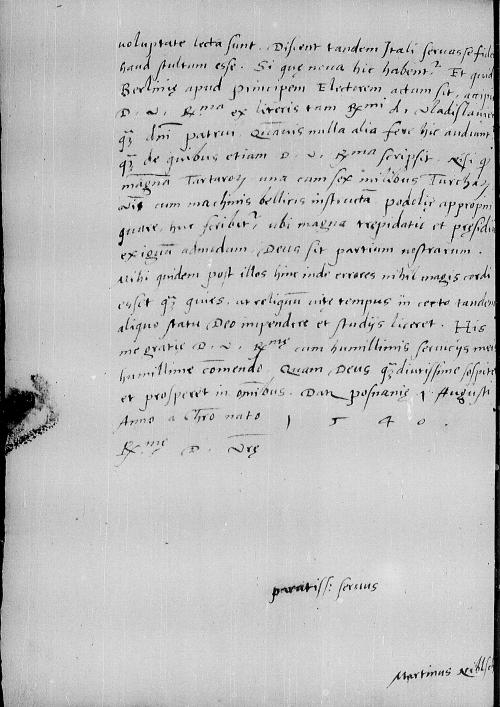 voluptate lecta sunt. Discent tandem Itali servasse fide
haud stultum esse. Si quę nova hic habentr. Et quid
Berlinię apud principem Electorem actum sit, accipi
D. V. Rma ex literis tam Rmi d. Vladislavien
qz dni patrui. Quavis nulla alia fere hic audiunt
qz de quibus etiam D. V. Rma scripsit. Nisi q
magna Tartaroz una cum sex milibus Turchaz
vis cum machinis bellicis instructa podolię appropin
quare huc scribitr, ubi magna trepidatio et pręsidiu
exiguu admodum, Deus sit partium nostrarum.
Mihi quidem post illos hinc inde errores nihil magis cordi
esset qz quies, ut reliquu vitę tempus in certo tandem
aliquo statu Deo impendere et studijs liceret. His
me gratię D. V. Rmę cum humillimis servicijs meis
humillime comendo. Quam Deus qz diutissime sospite
et prosperet in omibus. Dat posnanię 1 Augusti
Anno a Chro nato 1 5 4 0.
Rmę D. Vrę
paratiss: servus
Martinus